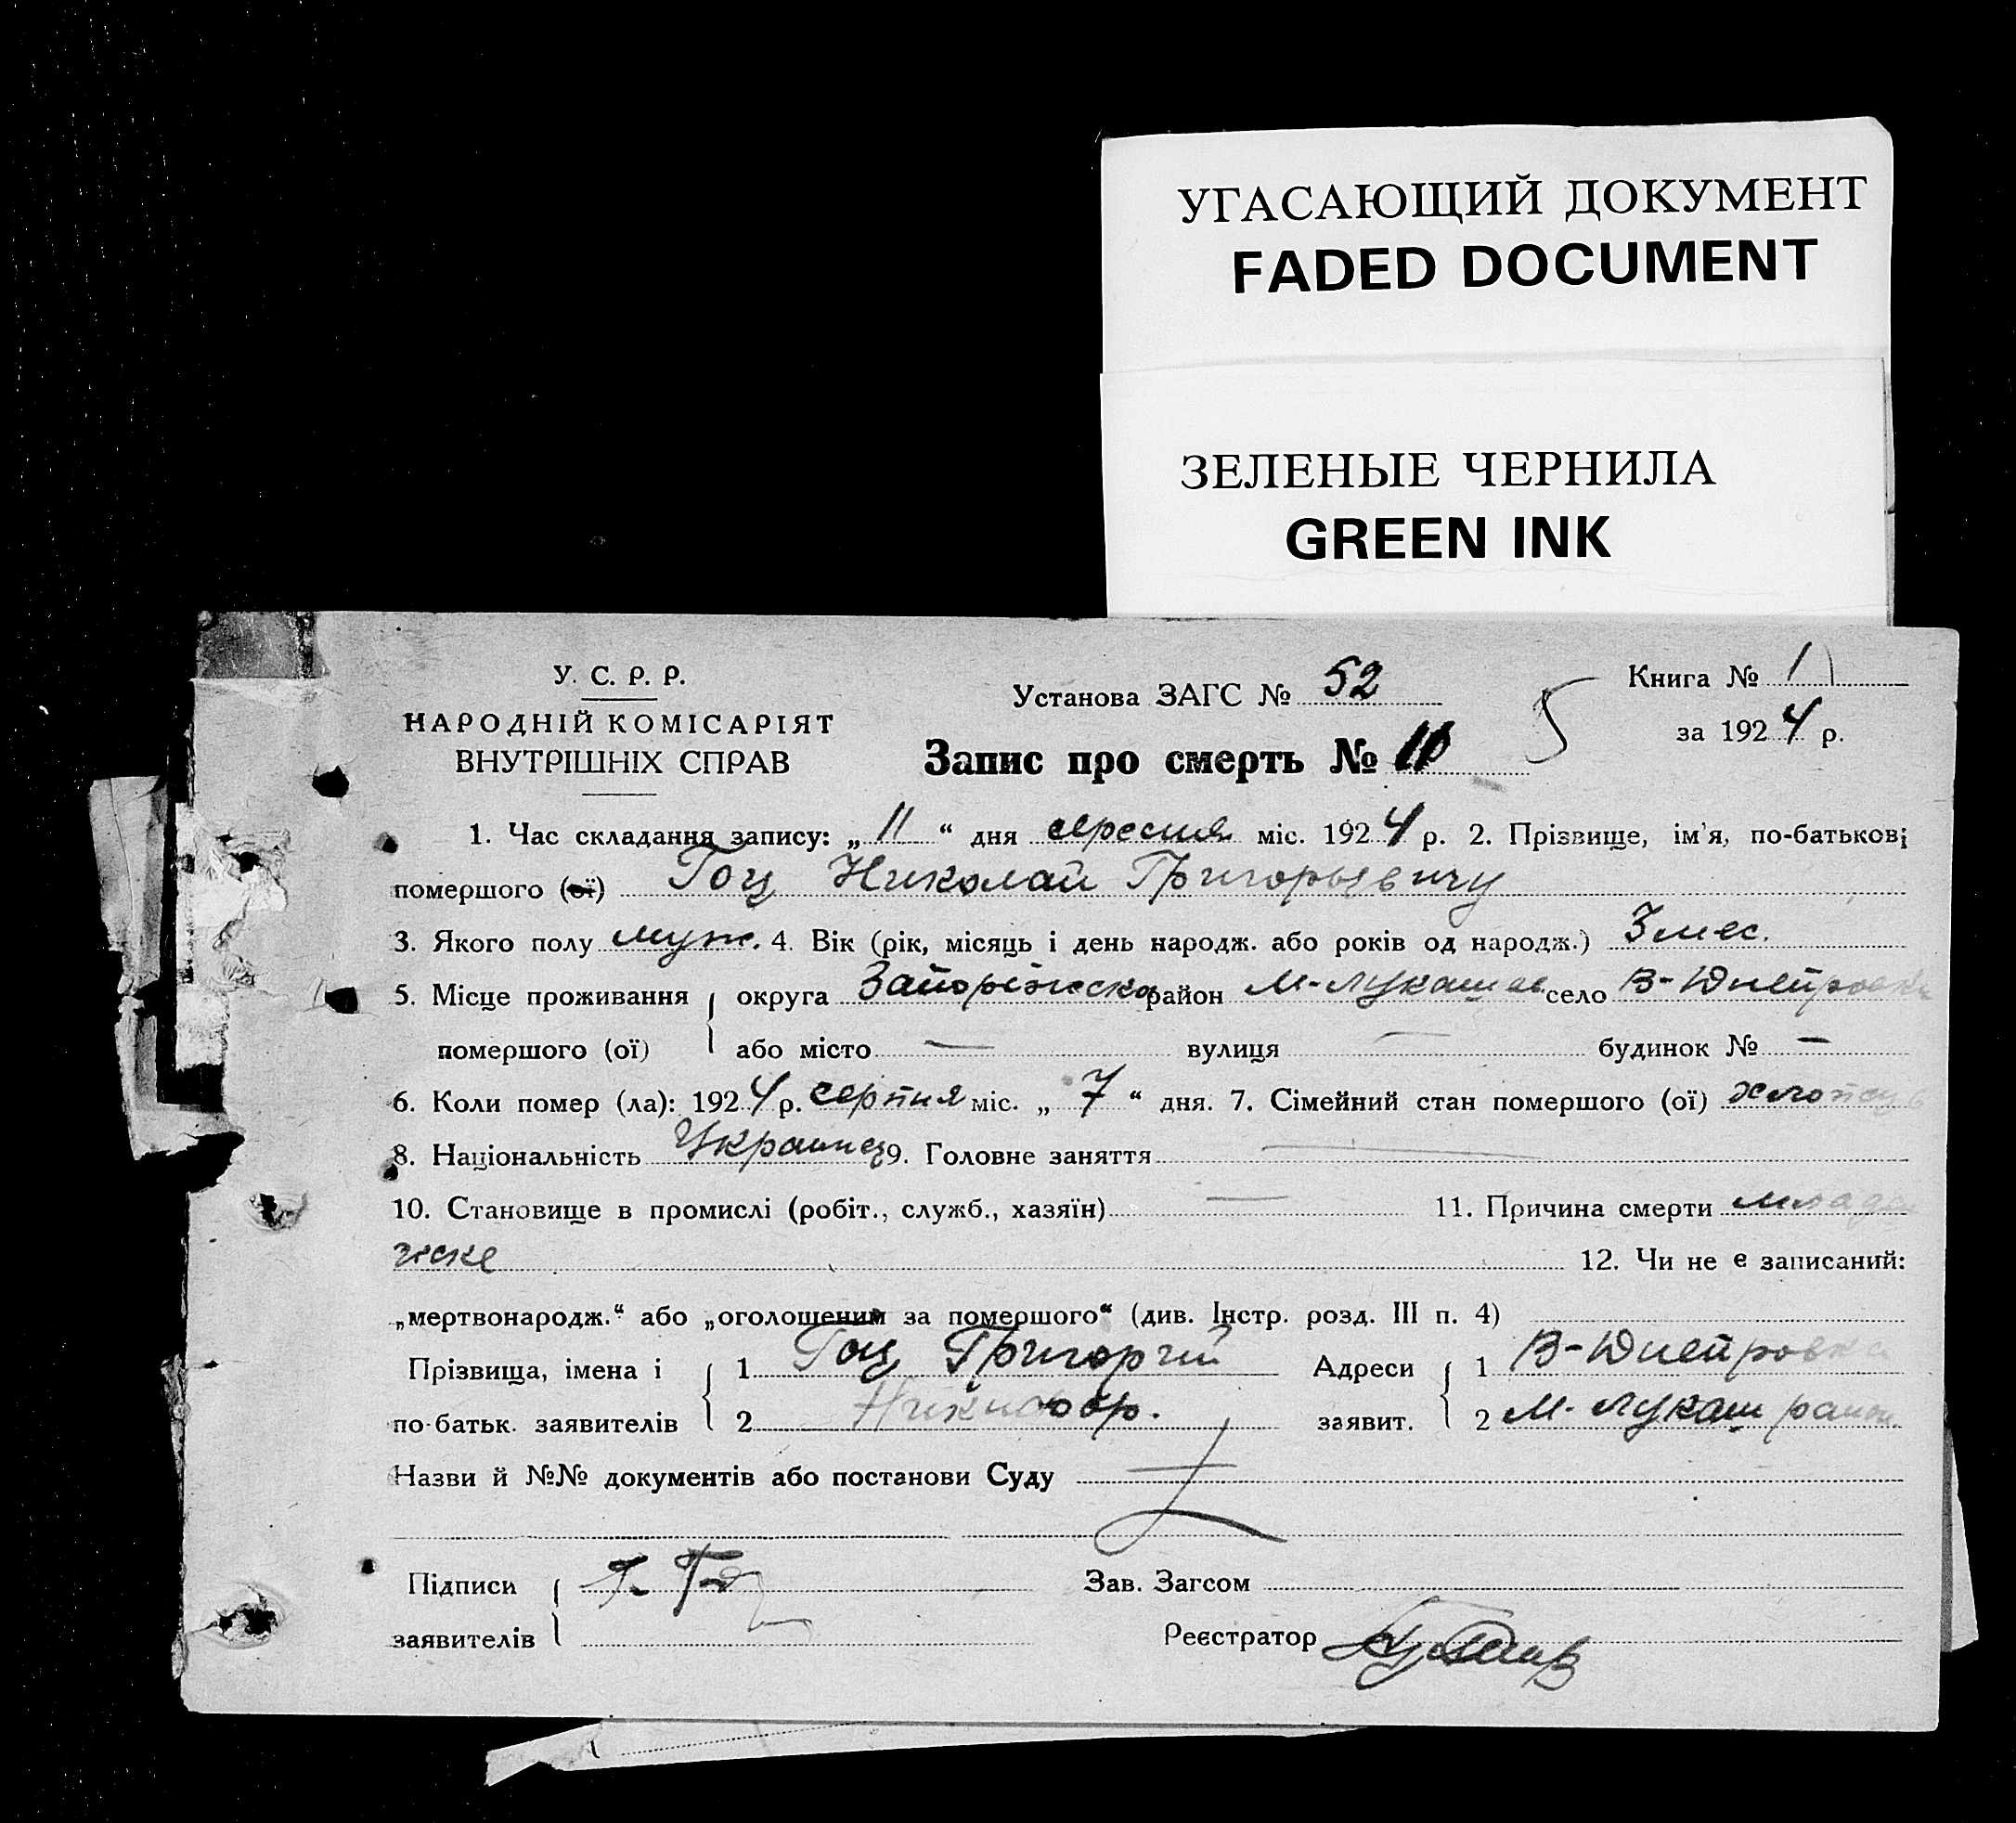 УГАСАЮЩИЙ ДОКУМЕНТ
FADED DOCUMENT
ЗЕЛЕНЫЕ ЧЕРНИЛА
GREEN INK
У. С. Р. Р.
НАРОДНІЙ КОМІСАРІЯТ
ВНУТРІШНІХ СПРАВ
Установа ЗАГС № 52
5
Книга № 1
за 1924 р.
Запис про смерть №
1. Час складання запису: „ 11 “ дня міс. 1924 р. 2. Прізвище, ім'я, по-батькові
помершого (ої) Гоц Николай Григорьевичу
3. Якого полу муж. 4. Вік (рік, місяць і день народж. або років од народж.) 3 мес.
5. Місце проживання округа Запоріжска район М-Лукашев село В-Днепровка
помершого (ої) або місто — вулиця — будинок № —
6. Коли помер (ла): 1924 р. серпня міс. „ 7 “ дня. 7. Сімейний стан помершого (ої)
8. Національність Украинец 9. Головне заняття —
10. Становище в промислі (робіт., служб., хазяїн) — 11. Причина смерти
12. Чи не є записаний:
„мертвонародж.“ або „оголошений за помершого“ (див. Інстр. розд. III п. 4)
Прізвища, імена і 1 Гоц Григорий Адреси 1 В-Днепровка
по-батьк. заявителів 2 заявит. 2 М. Лукаш район
Назви й №№ документів або постанови Суду —
Підписи Г. Гоц Зав. Загсом
заявителів Реєстратор